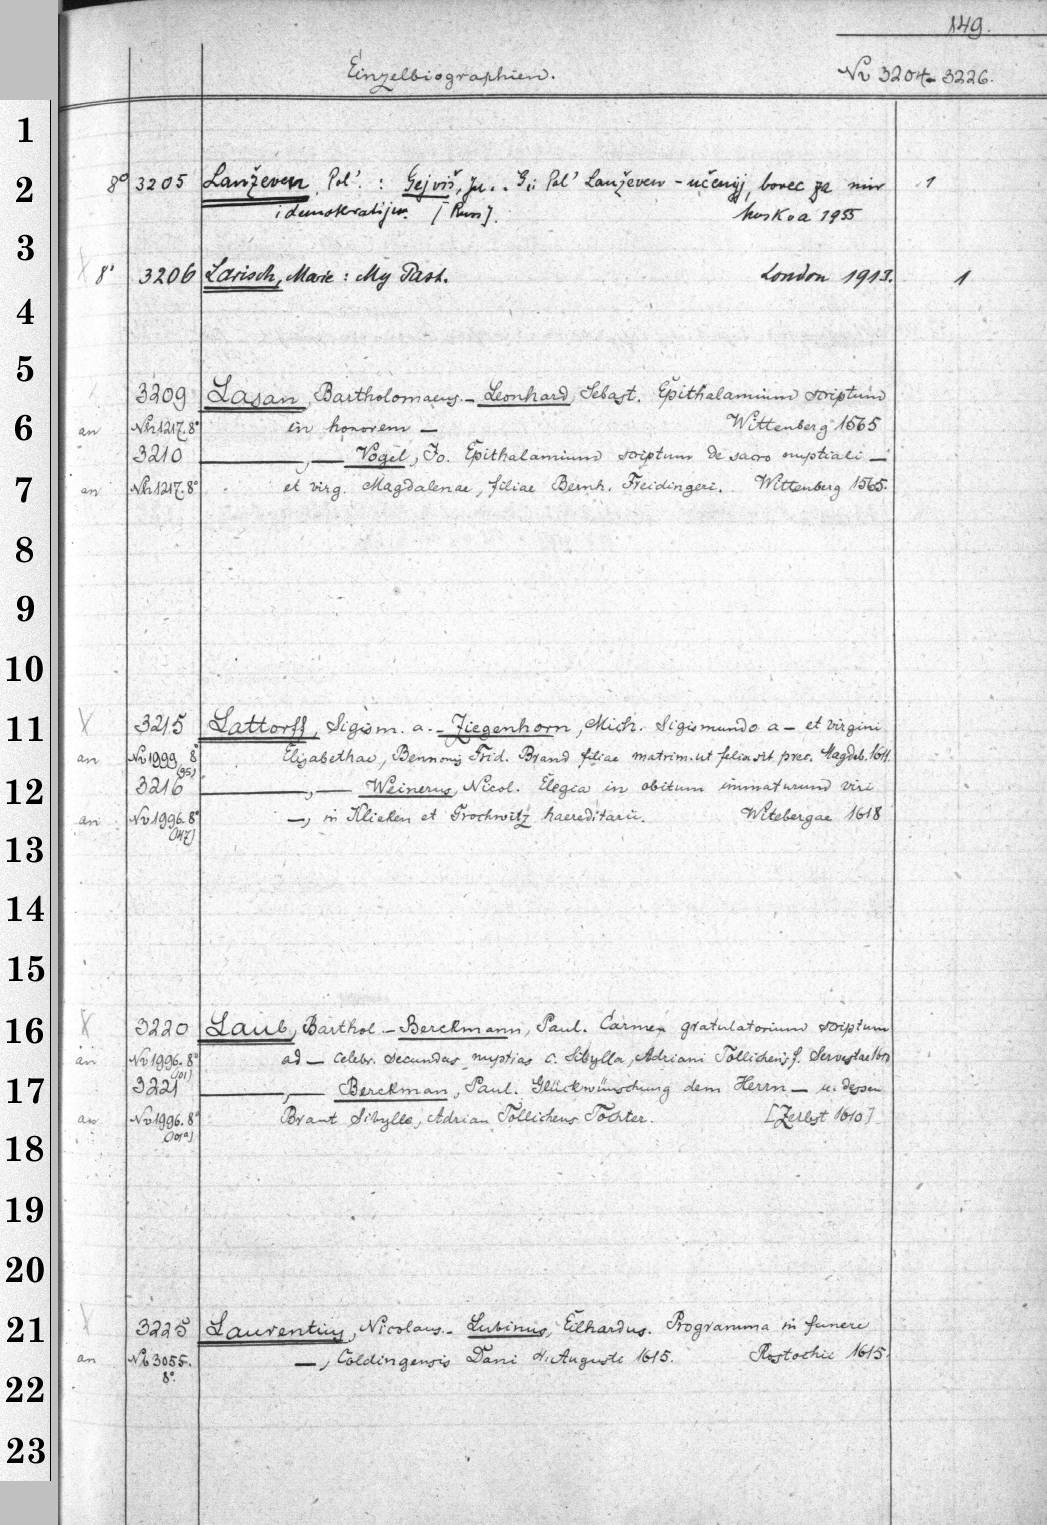 149.
Einzelbiographien. Nr 3204-3226.
1
2
3
4
5
6
7
8
9
10
11
12
13
14
15
16
17
18
19
20
21
22
23
8° 3205 Lanževen, Pol'. : Gejviš, Ju. . G.: Pol' Lanževen - učenyj, borec za mir 1
i demokratiju. [Russ]. Moskva 1955
8° 3206 Larisch, Marie : My Past. London 1913. 1
3209 Lasan, Bartholomaeus. - Leonhard, Sebast. Epithalamium scriptum
an Nh 1217. 8° in honorem — Wittenberg 1565
3210 —, — Vogel, Jo. Epithalamium scriptum de sacro nuptiali —
an Nh 1217. 8° et virg. Magdalenae, filiae Bernh. Freidingeri. Wittenberg 1565.
3215 Lattorff, Sigism. a. - Ziegenhorn, Mich. Sigismundo a — et virgini
an Nv 1999 8° Elisabethae, Bennonis Frid. Brand filiae matrim. ut felix sit prec. Magdeb. 1611.
(95)
3216 —, — Weinerus, Nicol. Elegia in obitum immaturum viri
an Nv 1996. 8° —, in Klieken et Grochwitz haereditarii. Witebergae 1618
(147)
3220 Laub, Barthol. - Berckmann, Paul. Carmen gratulatorium scriptum
an Nv 1996. 8° ad — celebr. secundas nuptias c. Sibylla, Adriani Tollichenij f. Servestae 1610
(101)
3221 —, — Berckman, Paul. Glückwünschung dem Herrn — u. dessen
an Nv 1996. 8° Braut Sibylle, Adrian Tollichens Tochter. [Zerbst 1610]
(101a)
3225 Laurentius, Nicolaus. - Lubinus, Eilhardus. Programma in funere
an Nb 3055. —, Coldingensis Dani 4. Augusti 1615. Rostochii 1615.
8°.